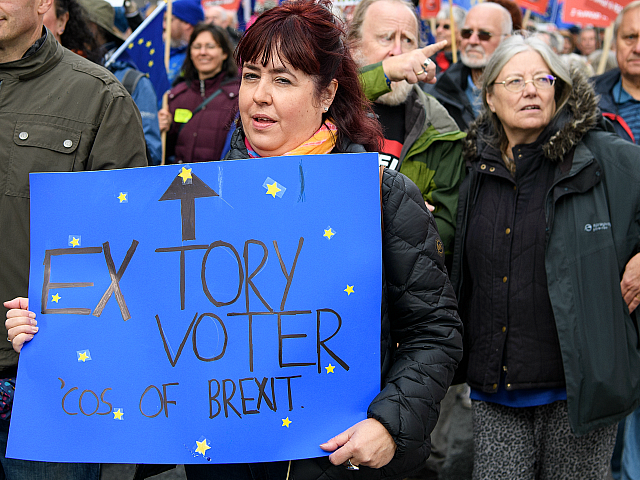 EX TORY
VOTER
'COS. OF BREXIT.